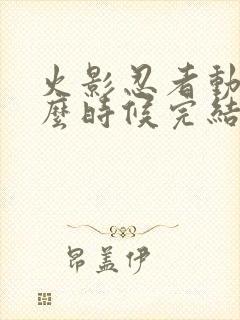 火影忍者動
麼時候完結
昂盖伊